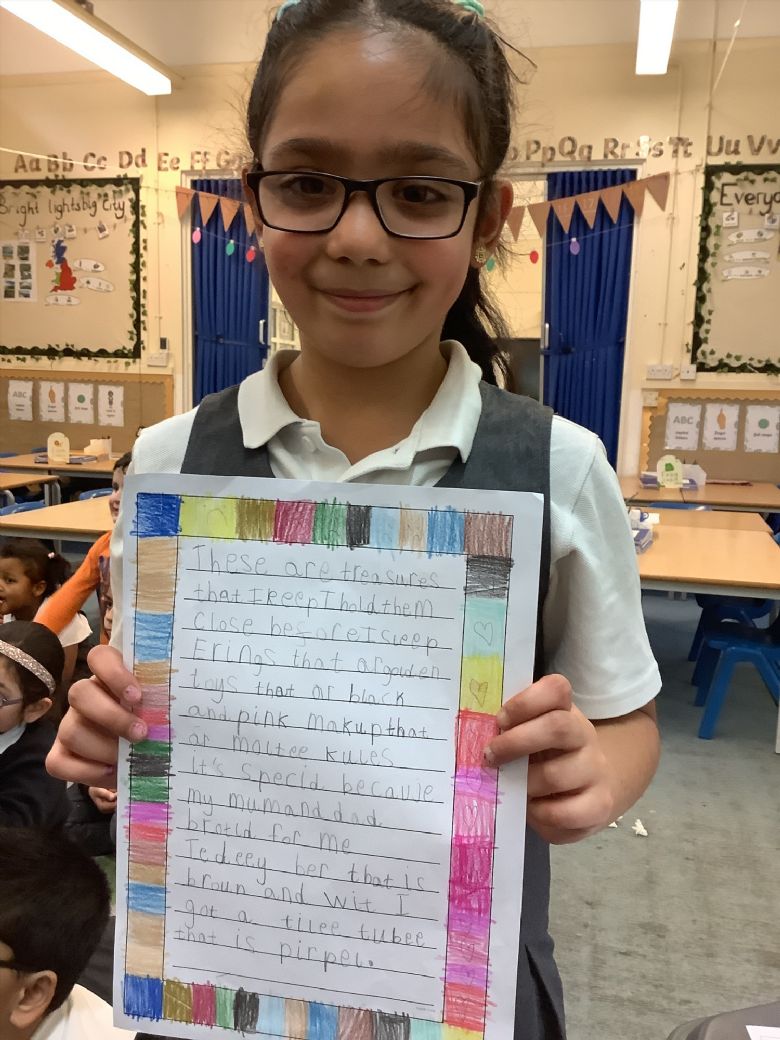 Aa Bb Cc Dd Ee Ff G
Pp Qq Rr Ss Tt Uu Vv
Bright lights big City
Everyd
ABC
ABC
These are treasures
that I keep I hold them
close before I sleep
Erings that ar golden
toys that ar black
and pink makup that
ar maltee kules
It's specid because
my mum and dad
brotid for me
Tedeey ber that is
broun and wit I
got a tilee tubee
that is pirpel.